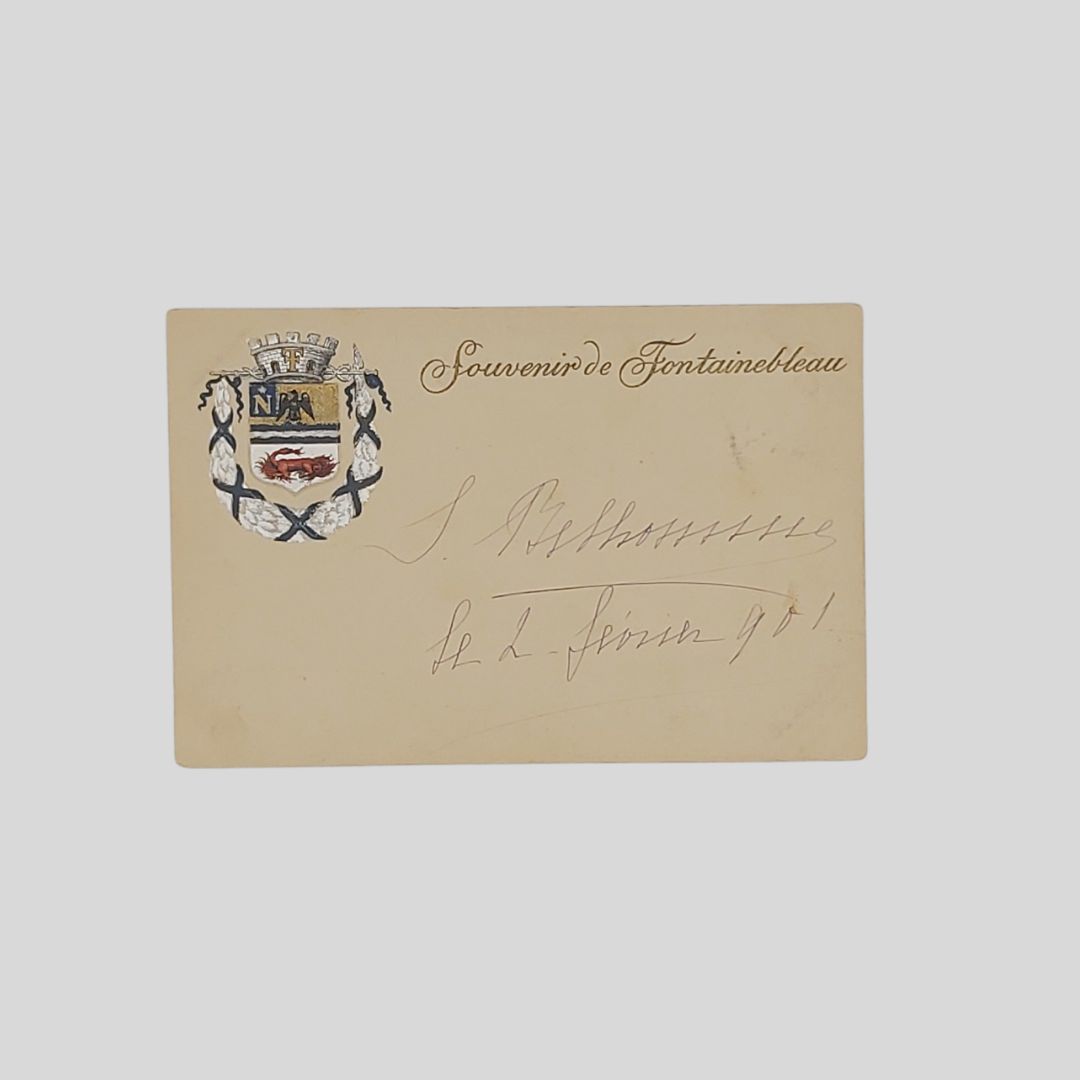 T
N
Souvenir de Fontainebleau
S. Belhomme
le 2 février 901